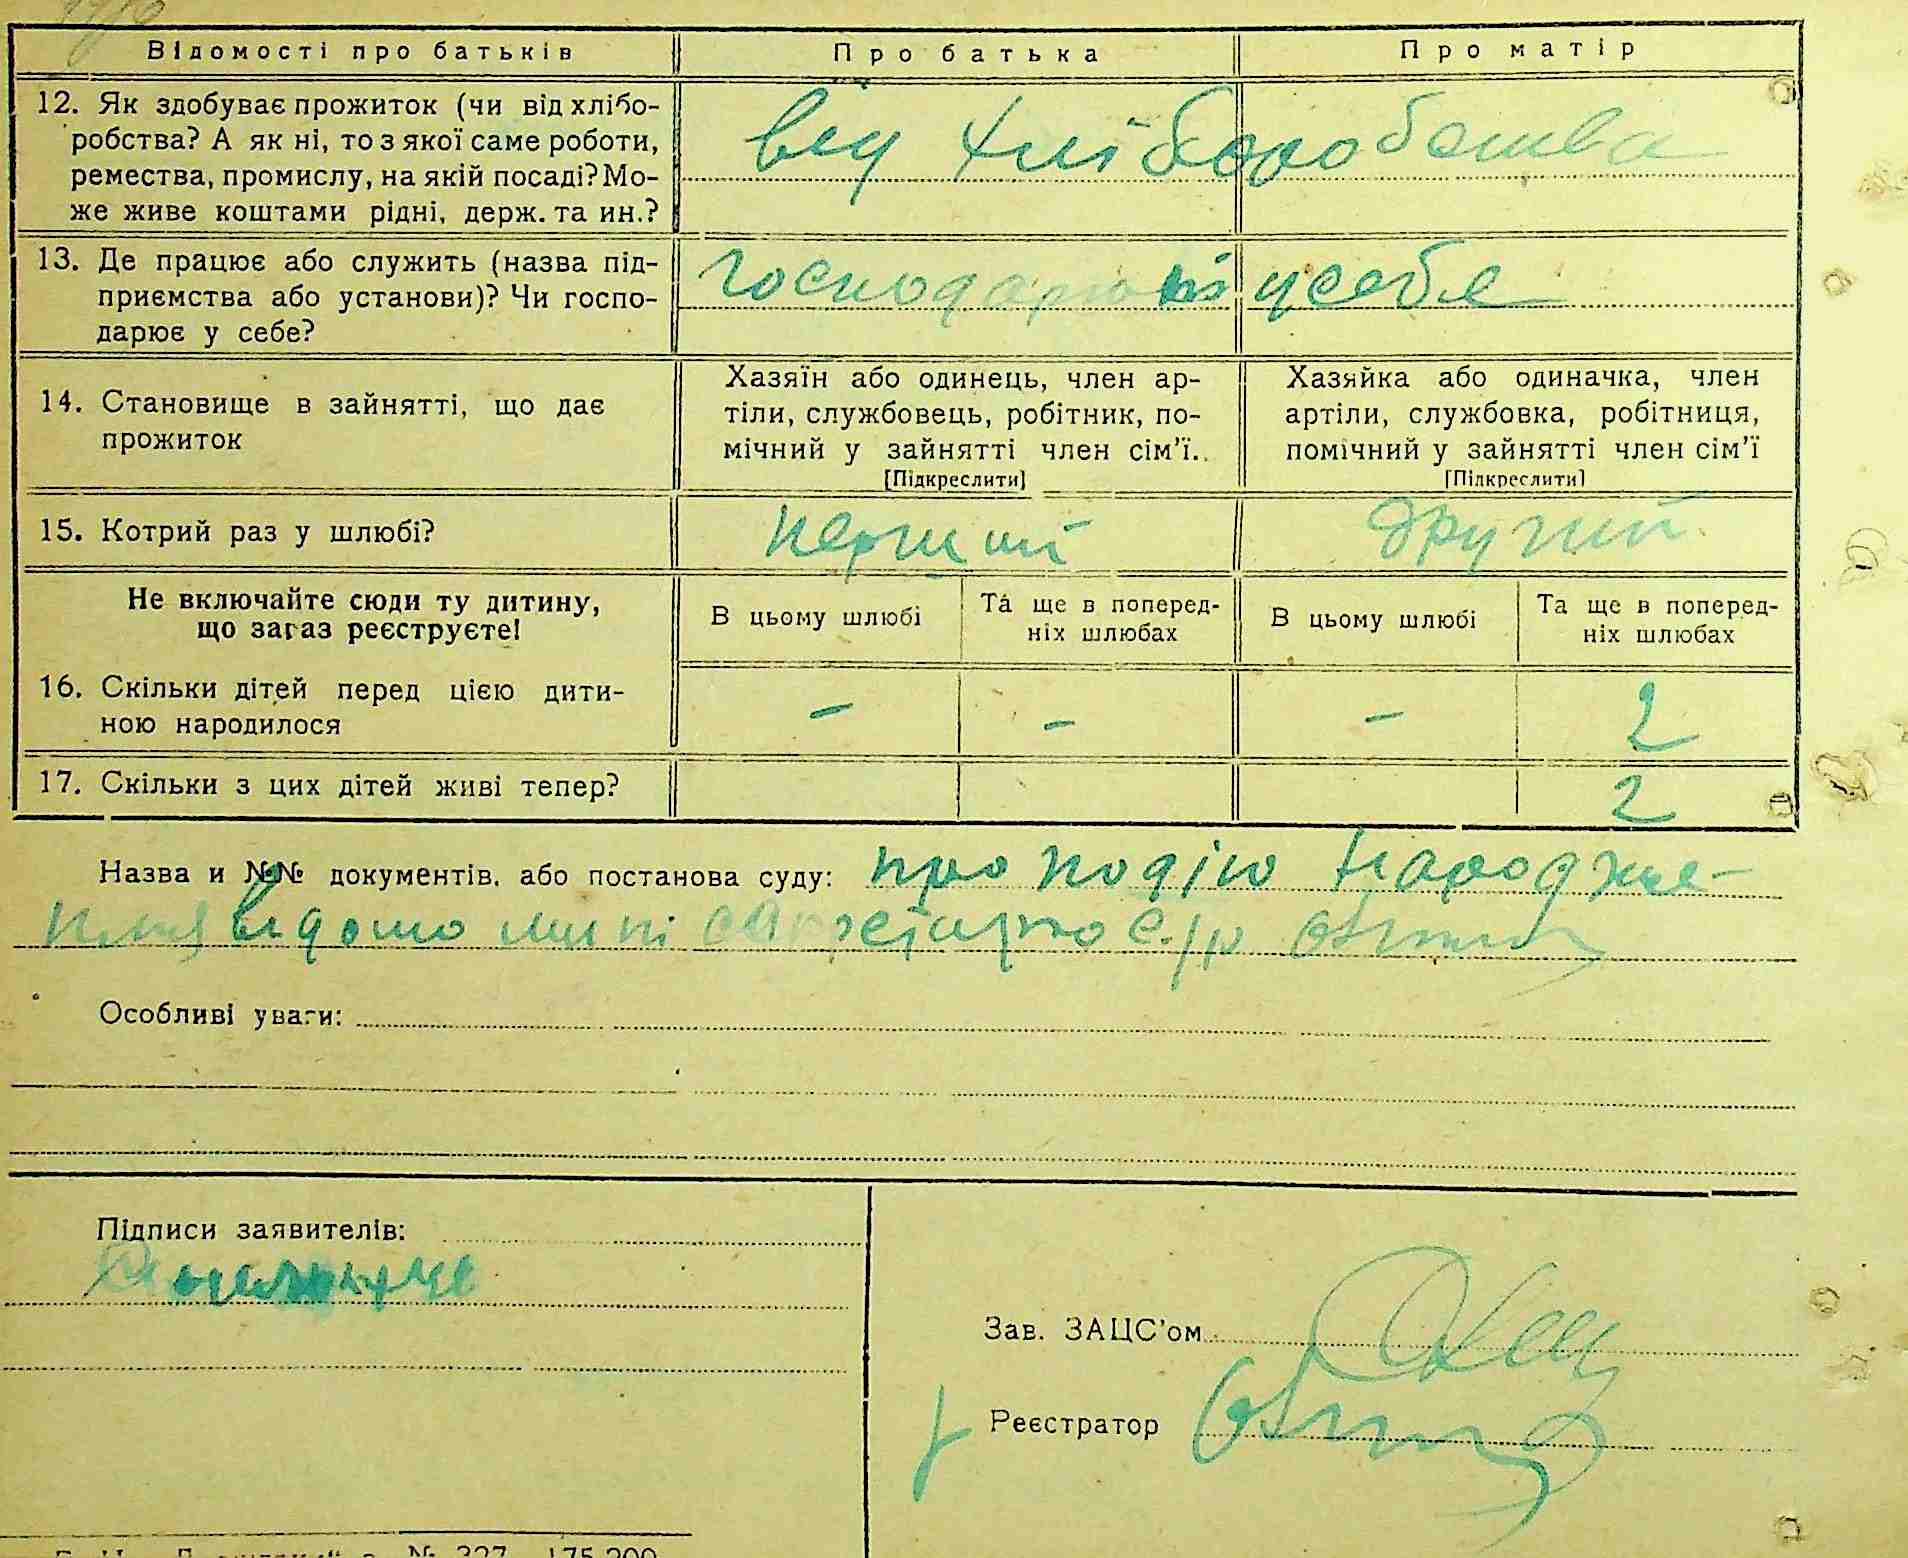 Відомості про батьків Про батька Про матір
12. Як здобуває прожиток (чи від хлібо-
робства? А як ні, то з якої саме роботи,
ремества, промислу, на якій посаді? Мо-
же живе коштами рідні, держ. та ин.?
від хліборобства
13. Де працює або служить (назва під-
приємства або установи)? Чи госпо-
дарює у себе?
господарює у себе
14. Становище в зайнятті, що дає
прожиток
Хазяїн або одинець, член ар-
тіли, службовець, робітник, по-
мічний у зайнятті член сім'ї..
[Підкреслити]
Хазяйка або одиначка, член
артіли, службовка, робітниця,
помічний у зайнятті член сім'ї
[Підкреслити]
15. Котрий раз у шлюбі? перший другий
Не включайте сюди ту дитину,
що зараз реєструєте!
В цьому шлюбі
Та ще в поперед-
ніх шлюбах
В цьому шлюбі
Та ще в поперед-
ніх шлюбах
16. Скільки дітей перед цією дити-
ною народилося
– – – 2
17. Скільки з цих дітей живі тепер? 2
Назва и №№ документів, або постанова суду: про подію народже-
ння відомо мині секретарю с/р
Особливі уваги:
Підписи заявителів:
Зав. ЗАЦС'ом
Реєстратор
№ 327 175.200